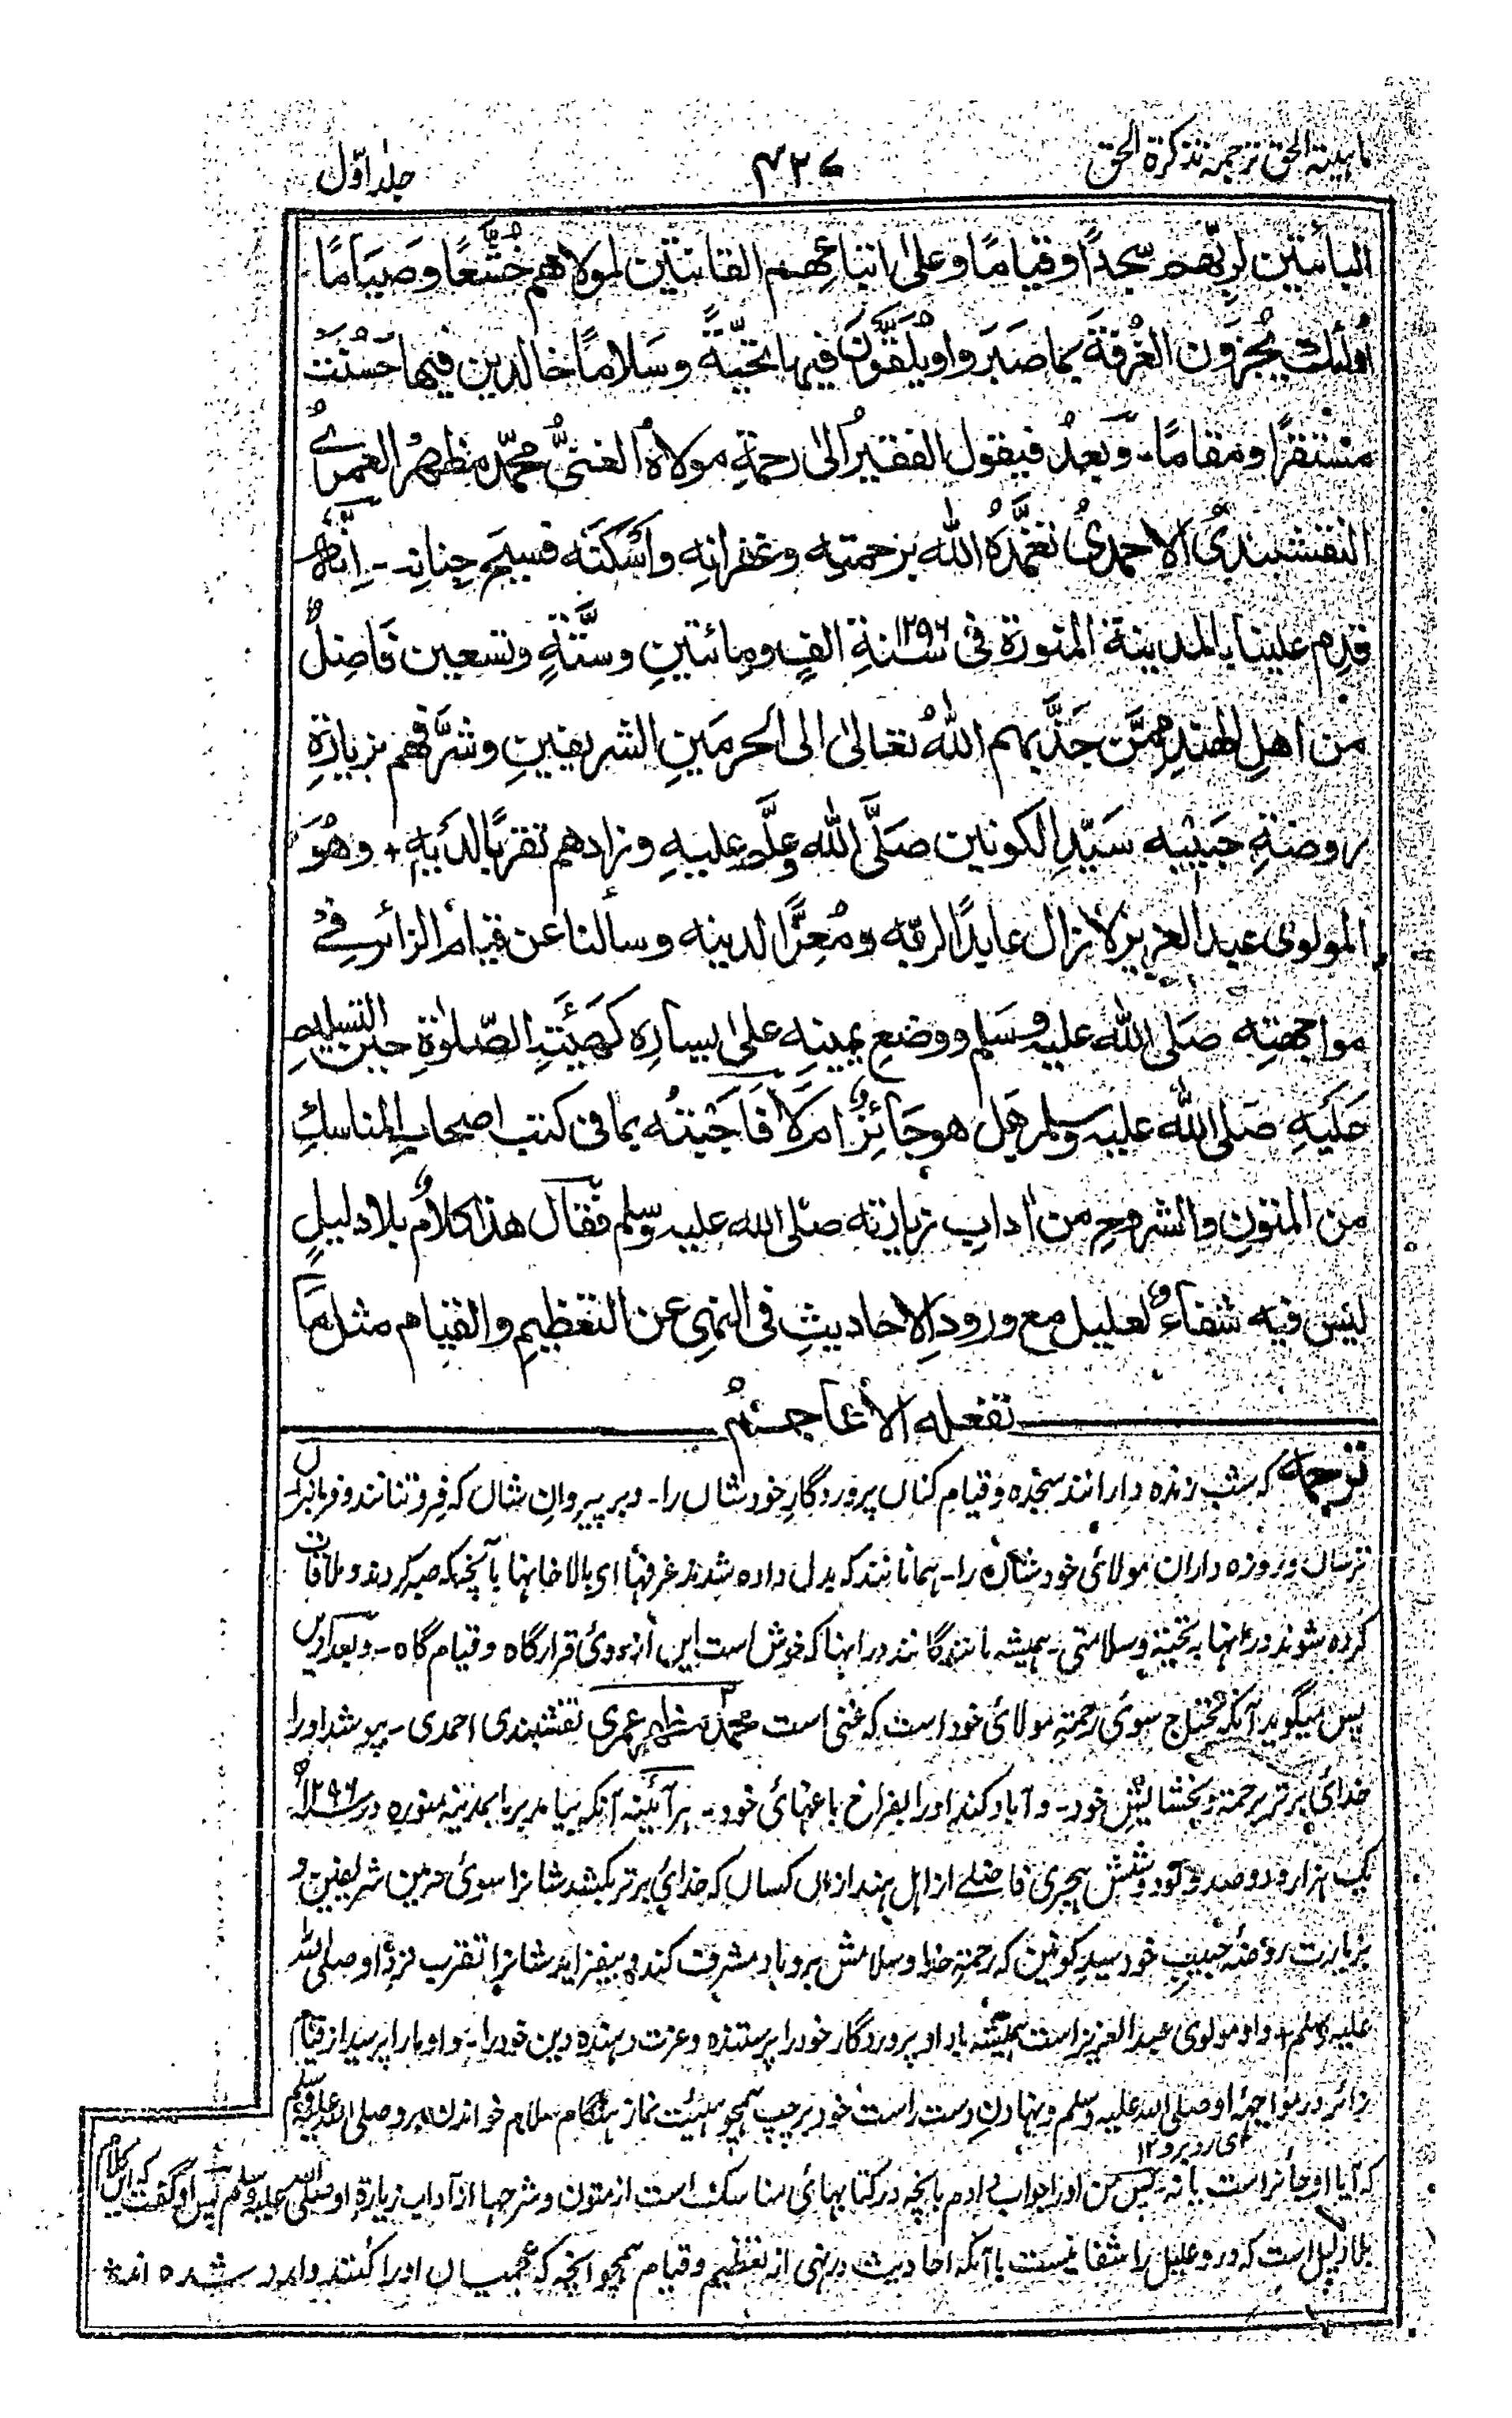 ماہیتہ الحق ترجمہ تذکرۃ الحق ۴۲۷ جلد اوّل
البائتين لربّهم سجّداً وقيامًا وعلى اتباعهم القانتين لمولاهم خُشَّعًا وصيامًا
اولئك يجزون الغُرفةَ بما صَبَروا ويُلَقَّونَ فيها تحيّةً وسَلامًا خالدين فيها حَسُنَت
مستقرًا ومقامًا۔ وبَعدُ فيقول الفقيرُ الىٰ رحمةِ مولاهُ الغنىُّ محمّد مظهر العمرىُّ
النقشبندىُ الاحمدىُ تغمَّدَهُ اللهُ برحمتِه وغفرانِه واَسْكَنَه فسيح جِنانِه۔ اِنّه
قدِم علينا بالمدينة المنورة فى سنةِ ۱۲۹۶ الفٍ ومائتينِ وستَّةٍ وتسعين فَاضِلٌ
من اهلِ الهندِ ممَّن جَذَبهم اللهُ تعالىٰ الى الحرمَينِ الشريفينِ وشرَّفهم بزيارةِ
روضةِ حَبيبِه سَيّدِ الكونين صَلَّى الله عليهِ وسلّم وزادهم تقرّبًا لدَيهِ + وهُوَ
المولوى عبد العزيز لا زال عابدًا لربّه ومُعِزًّا لدينه وسألنا عن قيام الزائر فى
مواجهتِه صَلى الله عليه وسَلم ووضعِ يمينِه على يسارِه كهَيئَتِ الصّلوٰةِ حين التسليم
عليهِ صَلى الله عليه وسلم هَل هو جَائزٌ ام لَا فَاَجَبتُه بما فى كتب اصحابِ المناسكِ
من المتونِ والشروحِ من اٰدابِ زيارته صلى الله عليه وسلم فقال هذا كلامٌ بلا دليلٍ
ليس فيه شفاءٌ لعليل مع ورودِ الاحاديثِ فى النهى عن التعظيمِ والقيام مثل ما
تفعله الأعاجمُ
ترجمہ کہ شب زندہ دارانند سجدہ وقیام کناں پروردگارِ خودشاں را۔ وبر پیروانِ شاں کہ فروتنانند وفرمانبر
ترسان وروزہ داران مولائی خودشان را۔ ہمانانند کہ بدل دادہ شدند غرفہا ای بالاخانہا بآنچہ کہ صبر کردند وملاقات
کردہ شوند درانہا بہ تحیتہ وسلامتی۔ ہمیشہ مانندگانند درانہا کہ خوش است این از روئ قرارگاہ وقیام گاہ۔ وبعد ازیں
پس میگوید آنکہ محتاج سوئ رحمتہ مولائ خود است کہ غنی است محمد مظہر عمری نقشبندی احمدی۔ بپوشد اورا
خدائ برتر برحمتہ وبخشایش خود۔ وآباد کند اورا بفراخ باغہائ خود۔ ہر آئینہ آنکہ بیامد بر ما بمدینہ منورہ در سنہ ۱۲۹۶
یک ہزار ودو صد ونود وشش ہجری فاضلے از اہل ہند از آں کساں کہ خدائ برتر بکشد شانرا سوئ حرمین شریفین و
بزیارت روضۂ حبیبِ خود سیدِ کونین کہ رحمتہ خدا وسلامش برو باد مشرف کند وبیفزاید شانرا تقرب نزد او صلی اللہ
علیہ وسلم + واو مولوی عبد العزیز است ہمیشہ باد او پروردگار خود را پرستندہ وعزت دہندہ دین خود را۔ واو مارا پرسید از قیام
زائر در مواجہۂ او صلی اللہ علیہ وسلم ونہادنِ دست راست خود بر چپ ہمچو ہیئت نماز ہنگام سلام خواندن برو صلی اللہ علیہ وسلم
کہ آیا او جائز است یا نہ۔ پس من اورا جواب دادم بآنچہ در کتابہائ مناسک است از متون وشرحہا از آداب زیارۃ او صلی اللہ علیہ وسلم پس او گفت کہ این کلام
بلا دلیل است کہ درو علیل را شفا نیست با آنکہ احادیث در نہی از تعظیم وقیام ہمچو آنچہ کہ عجمیان اورا کنند وارد شدہ اند*